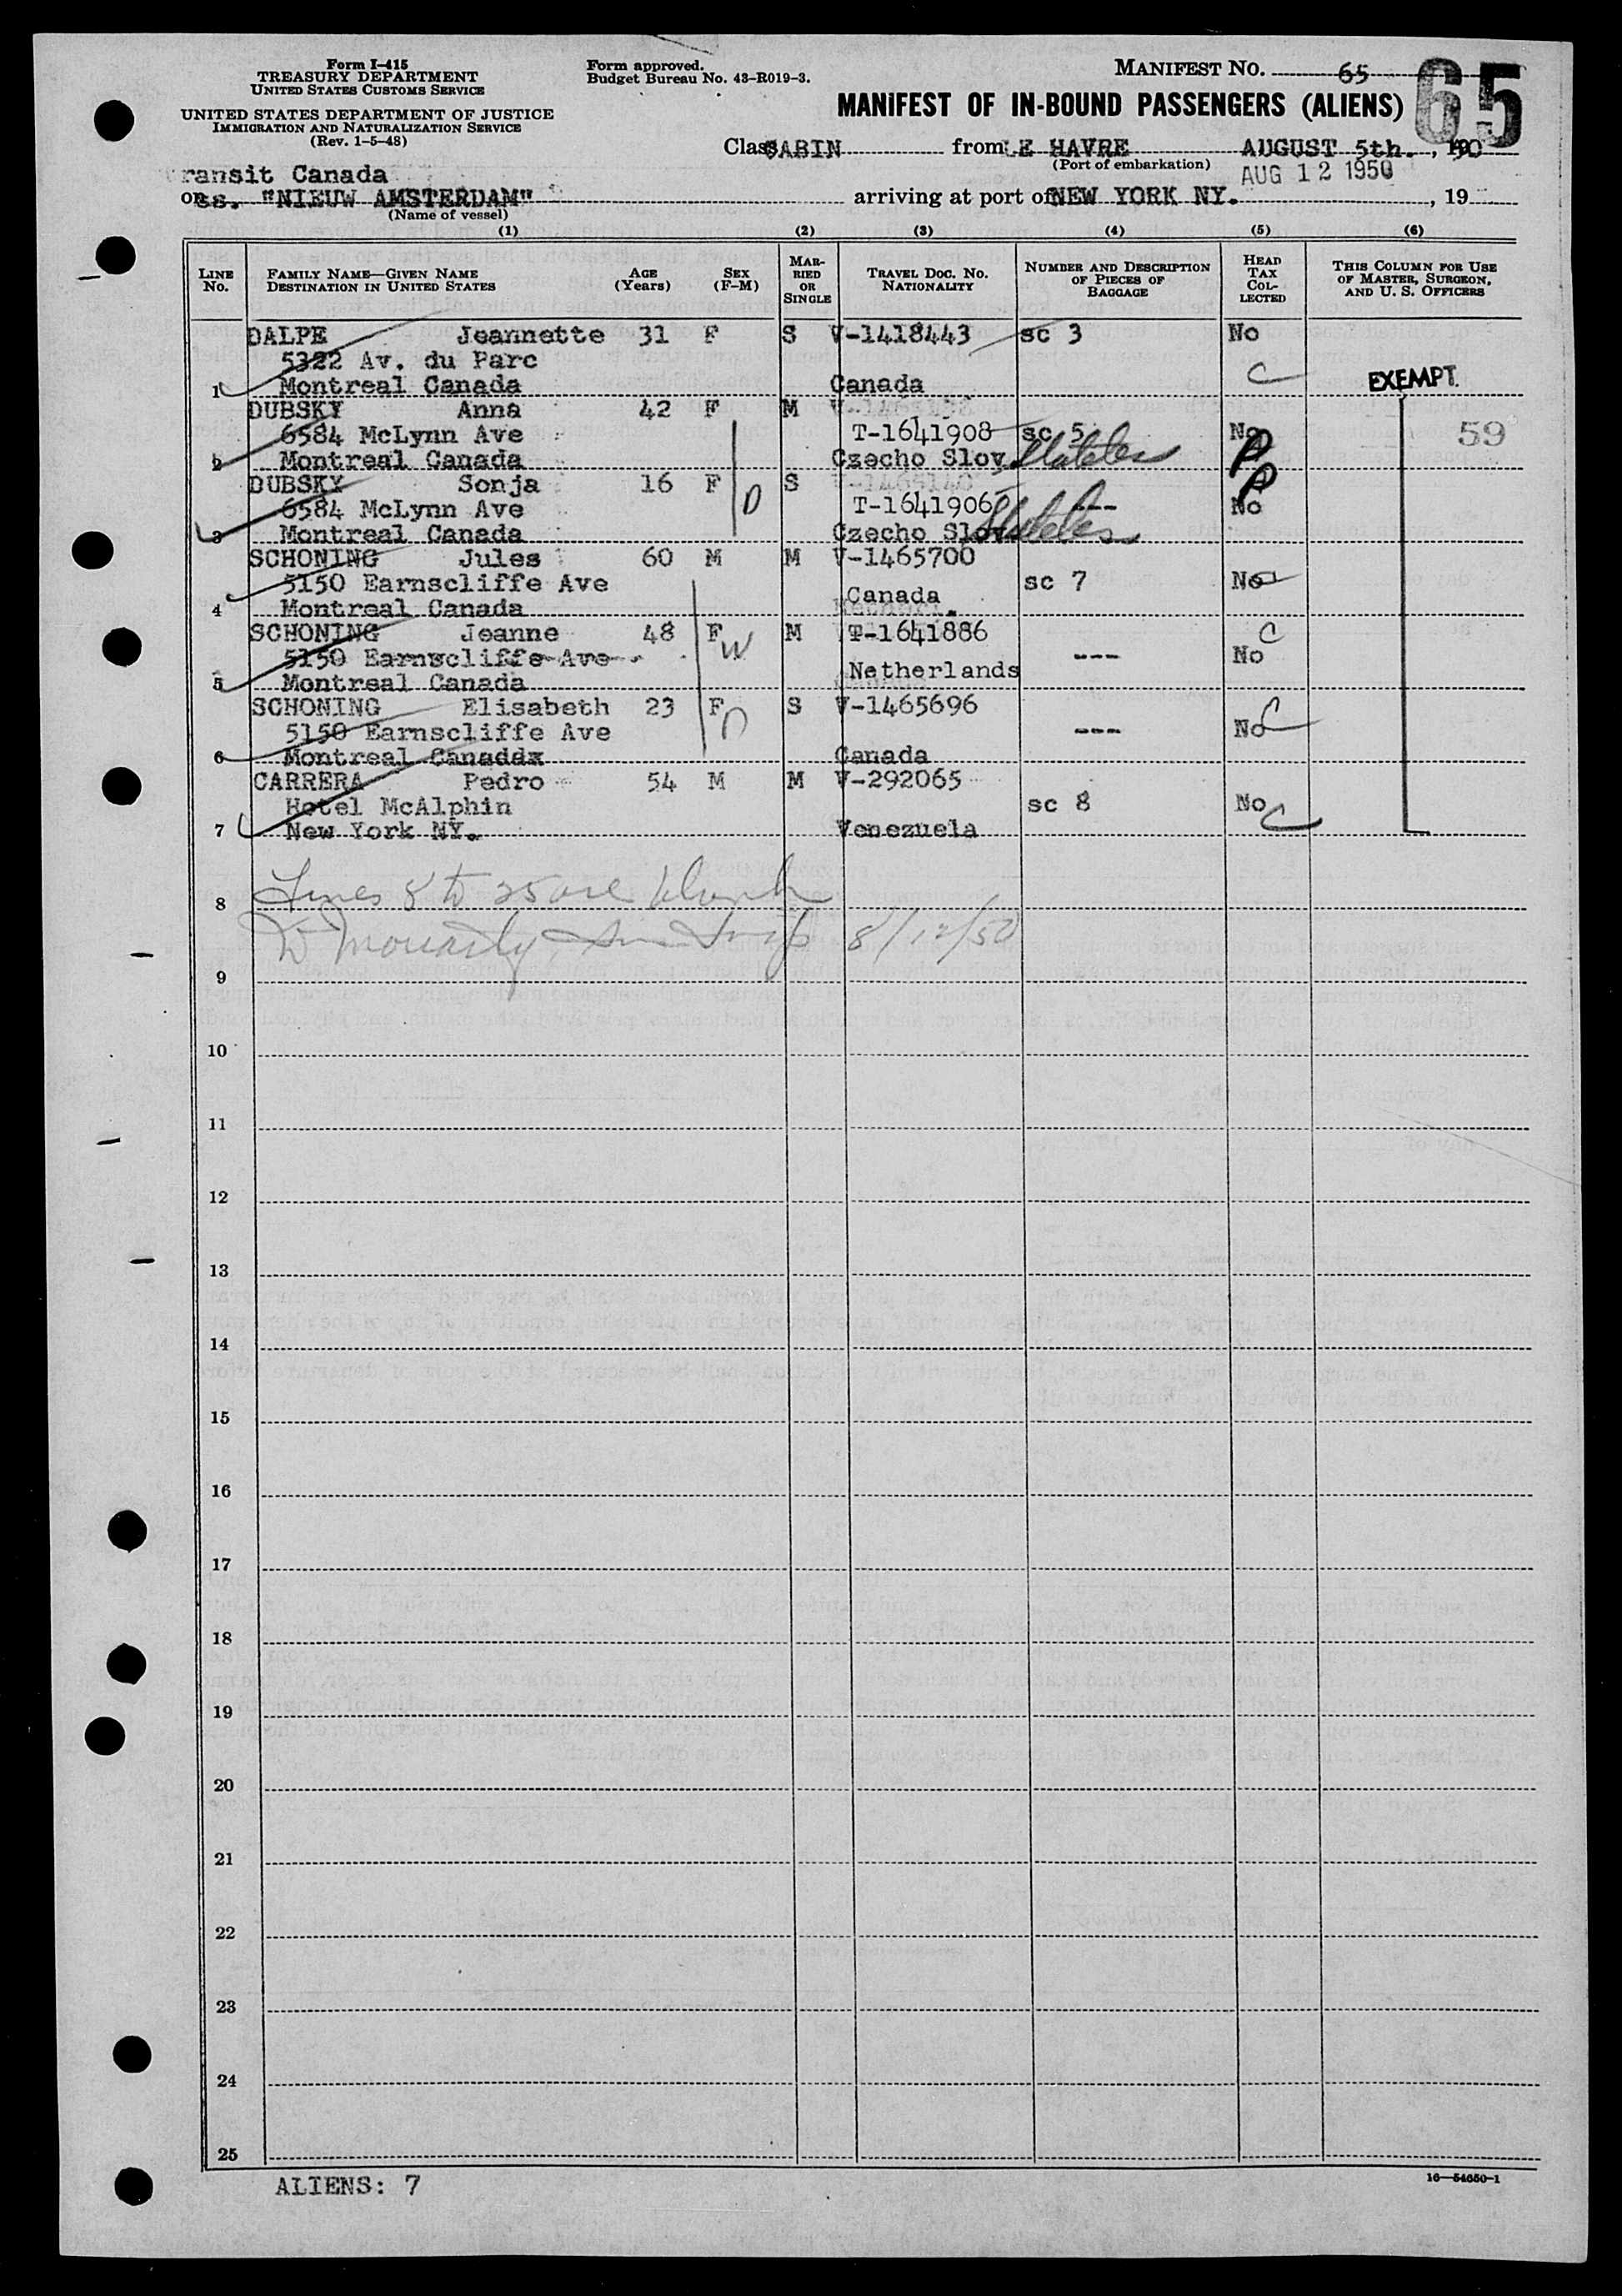 Form I-415
TREASURY DEPARTMENT
UNITED STATES CUSTOMS SERVICE
UNITED STATES DEPARTMENT OF JUSTICE
IMMIGRATION AND NATURALIZATION SERVICE
(Rev. 1-5-48)
Form approved.
Budget Bureau No. 43-R019-3.
MANIFEST NO. 65
65
MANIFEST OF IN-BOUND PASSENGERS (ALIENS)
Class CABIN from LE HAVRE AUGUST 5th. , 19
(Port of embarkation)
ransit Canada
AUG 12 1950
on ss. "NIEUW AMSTERDAM" arriving at port of NEW YORK NY. , 19
(Name of vessel)
(1) (2) (3) (4) (5) (6)
LINE NO. FAMILY NAME—GIVEN NAME DESTINATION IN UNITED STATES AGE (Years) SEX (F-M) MARRIED OR SINGLE TRAVEL DOC. NO. NATIONALITY NUMBER AND DESCRIPTION OF PIECES OF BAGGAGE HEAD TAX COLLECTED THIS COLUMN FOR USE OF MASTER, SURGEON, AND U. S. OFFICERS
DALPE Jeannette 31 F S V-1418443 sc 3 No
5322 Av. du Parc
1 Montreal Canada Canada C EXEMPT.
DUBSKY Anna 42 F M
6584 McLynn Ave T-1641908 sc 5 No P 59
2 Montreal Canada Czecho Slov
DUBSKY Sonja 16 F S P
6584 McLynn Ave D T-1641906 --- No
3 Montreal Canada Czecho Slov
SCHONING Jules 60 M M V-1465700
5150 Earnscliffe Ave sc 7 No
4 Montreal Canada Canada
SCHONING Jeanne 48 F W M T-1641886 C
5150 Earnscliffe Ave --- No
5 Montreal Canada Netherlands
SCHONING Elisabeth 23 F D S V-1465696 C
5150 Earnscliffe Ave --- No
6 Montreal Canadax Canada
CARRERA Pedro 54 M M V-292065
Hotel McAlphin sc 8 No C
7 New York NY. Venezuela
8 Lines 8 to 25 are blank
8/12/50
9
10
11
12
13
14
15
16
17
18
19
20
21
22
23
24
25
ALIENS: 7
16—54650-1